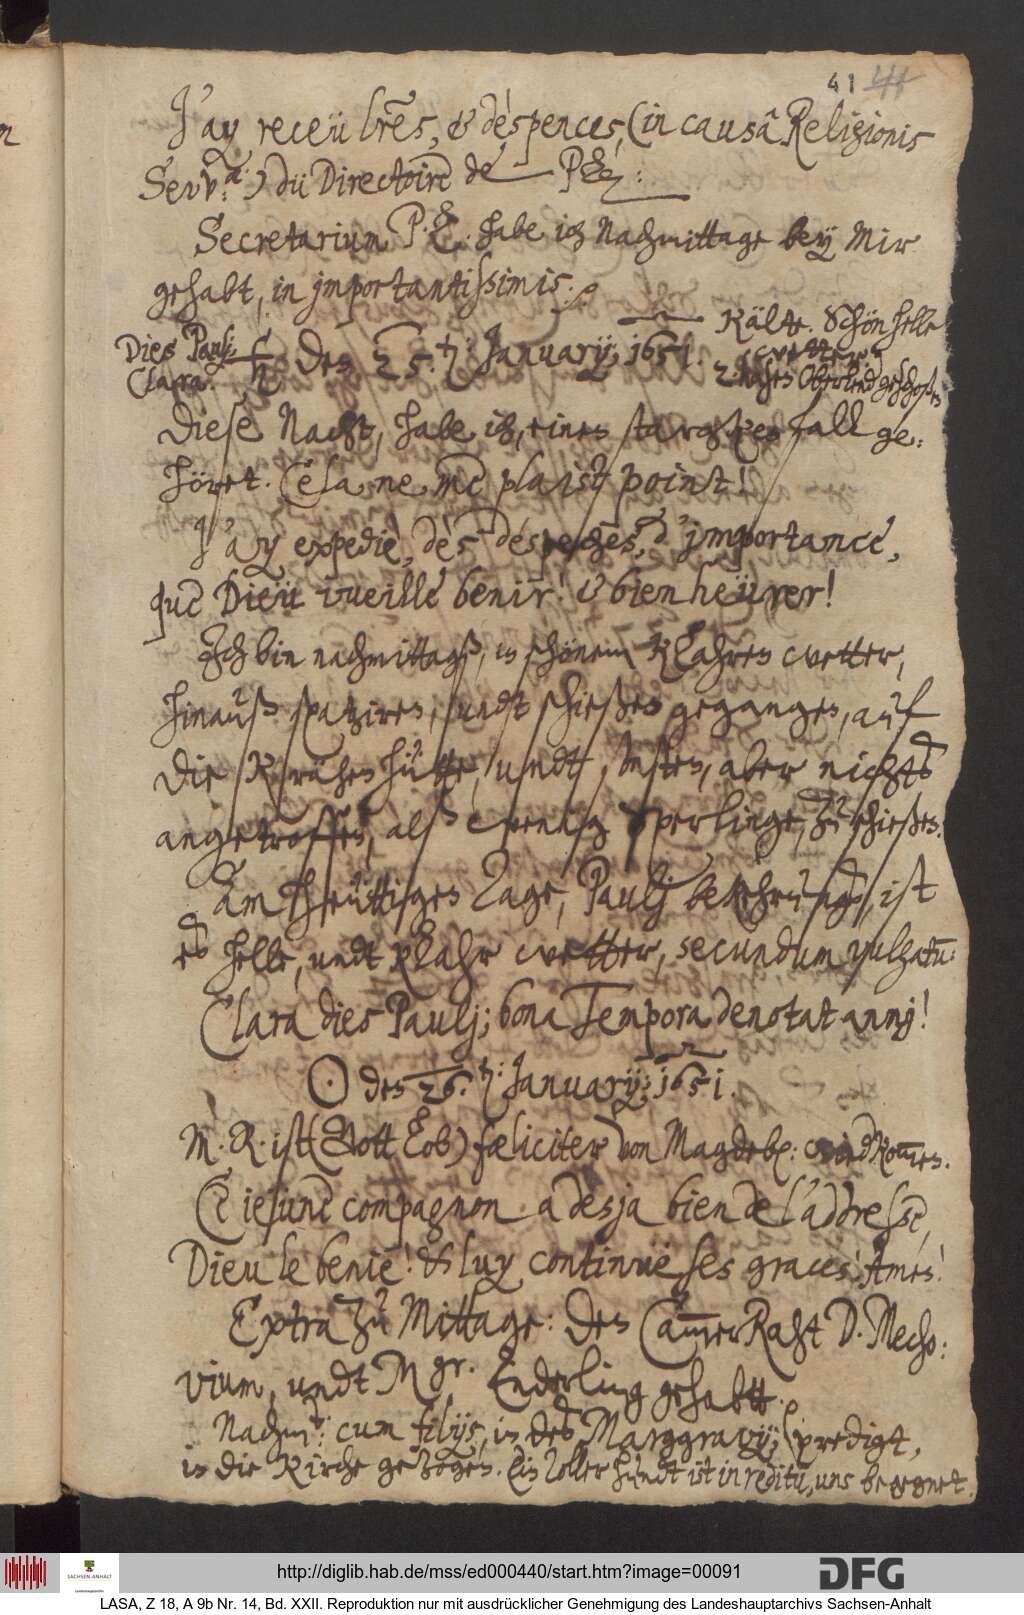 41
J'ay receü lrẽs, & déspences, (in causâ Religionis
Serv.ª:) dü Directoire de
Secretarium P. E. habe ich Nachmittage beÿ Mir
gehabt, in jmportantißimis.
Dies Pauli;
Clara.
♄ den 25. t: Januarÿ; 1651.
Kälte. Schön helle
wetter.
Diese Nacht, habe ich, einen starcken fall ge:
höret. Cela ne me plaist point!
J'ay expedie, dés déspeches, d'jmportance,
que Dieü vueille benir! & bien heürer!
Jch bin nachmittagß, in schönem Klahren wetter,
hinauß spatziren, undt schießen gegangen, auf
die Krähen hütte, undt sonsten, aber nichts
angetroffen, alß wenig Sperlinge, zu schießen.
Am heüttigen Tage, Paulj bekehrung, ist
es helle, undt Klahr wetter, secundum vulgatũ:
Clara dies Paulj; bona Tempora denotat annj!
☉ den 26. t: Januarÿ; 1651.
M. R. ist (Gott Lob) fæliciter von Magdeb: wiedkom̅en.
Ce jeune compagnon a desja bien de l'addresse,
Dieu le benie! & luy continuë ses graces! Amen!
Extra zu Mittage: den Cam̅erRaht D. Mecho:
vium, undt Mgr. Enderling gehabtt.
Nachmt: cum filijs, in des Marggravij; predigt,
in die Kirche gezogen. Ein toller hundt ist in reditu, uns begegnet.
SACHSEN-ANHALT
Landeshauptarchiv
http://diglib.hab.de/mss/ed000440/start.htm?image=00091
DFG
LASA, Z 18, A 9b Nr. 14, Bd. XXII. Reproduktion nur mit ausdrücklicher Genehmigung des Landeshauptarchivs Sachsen-Anhalt